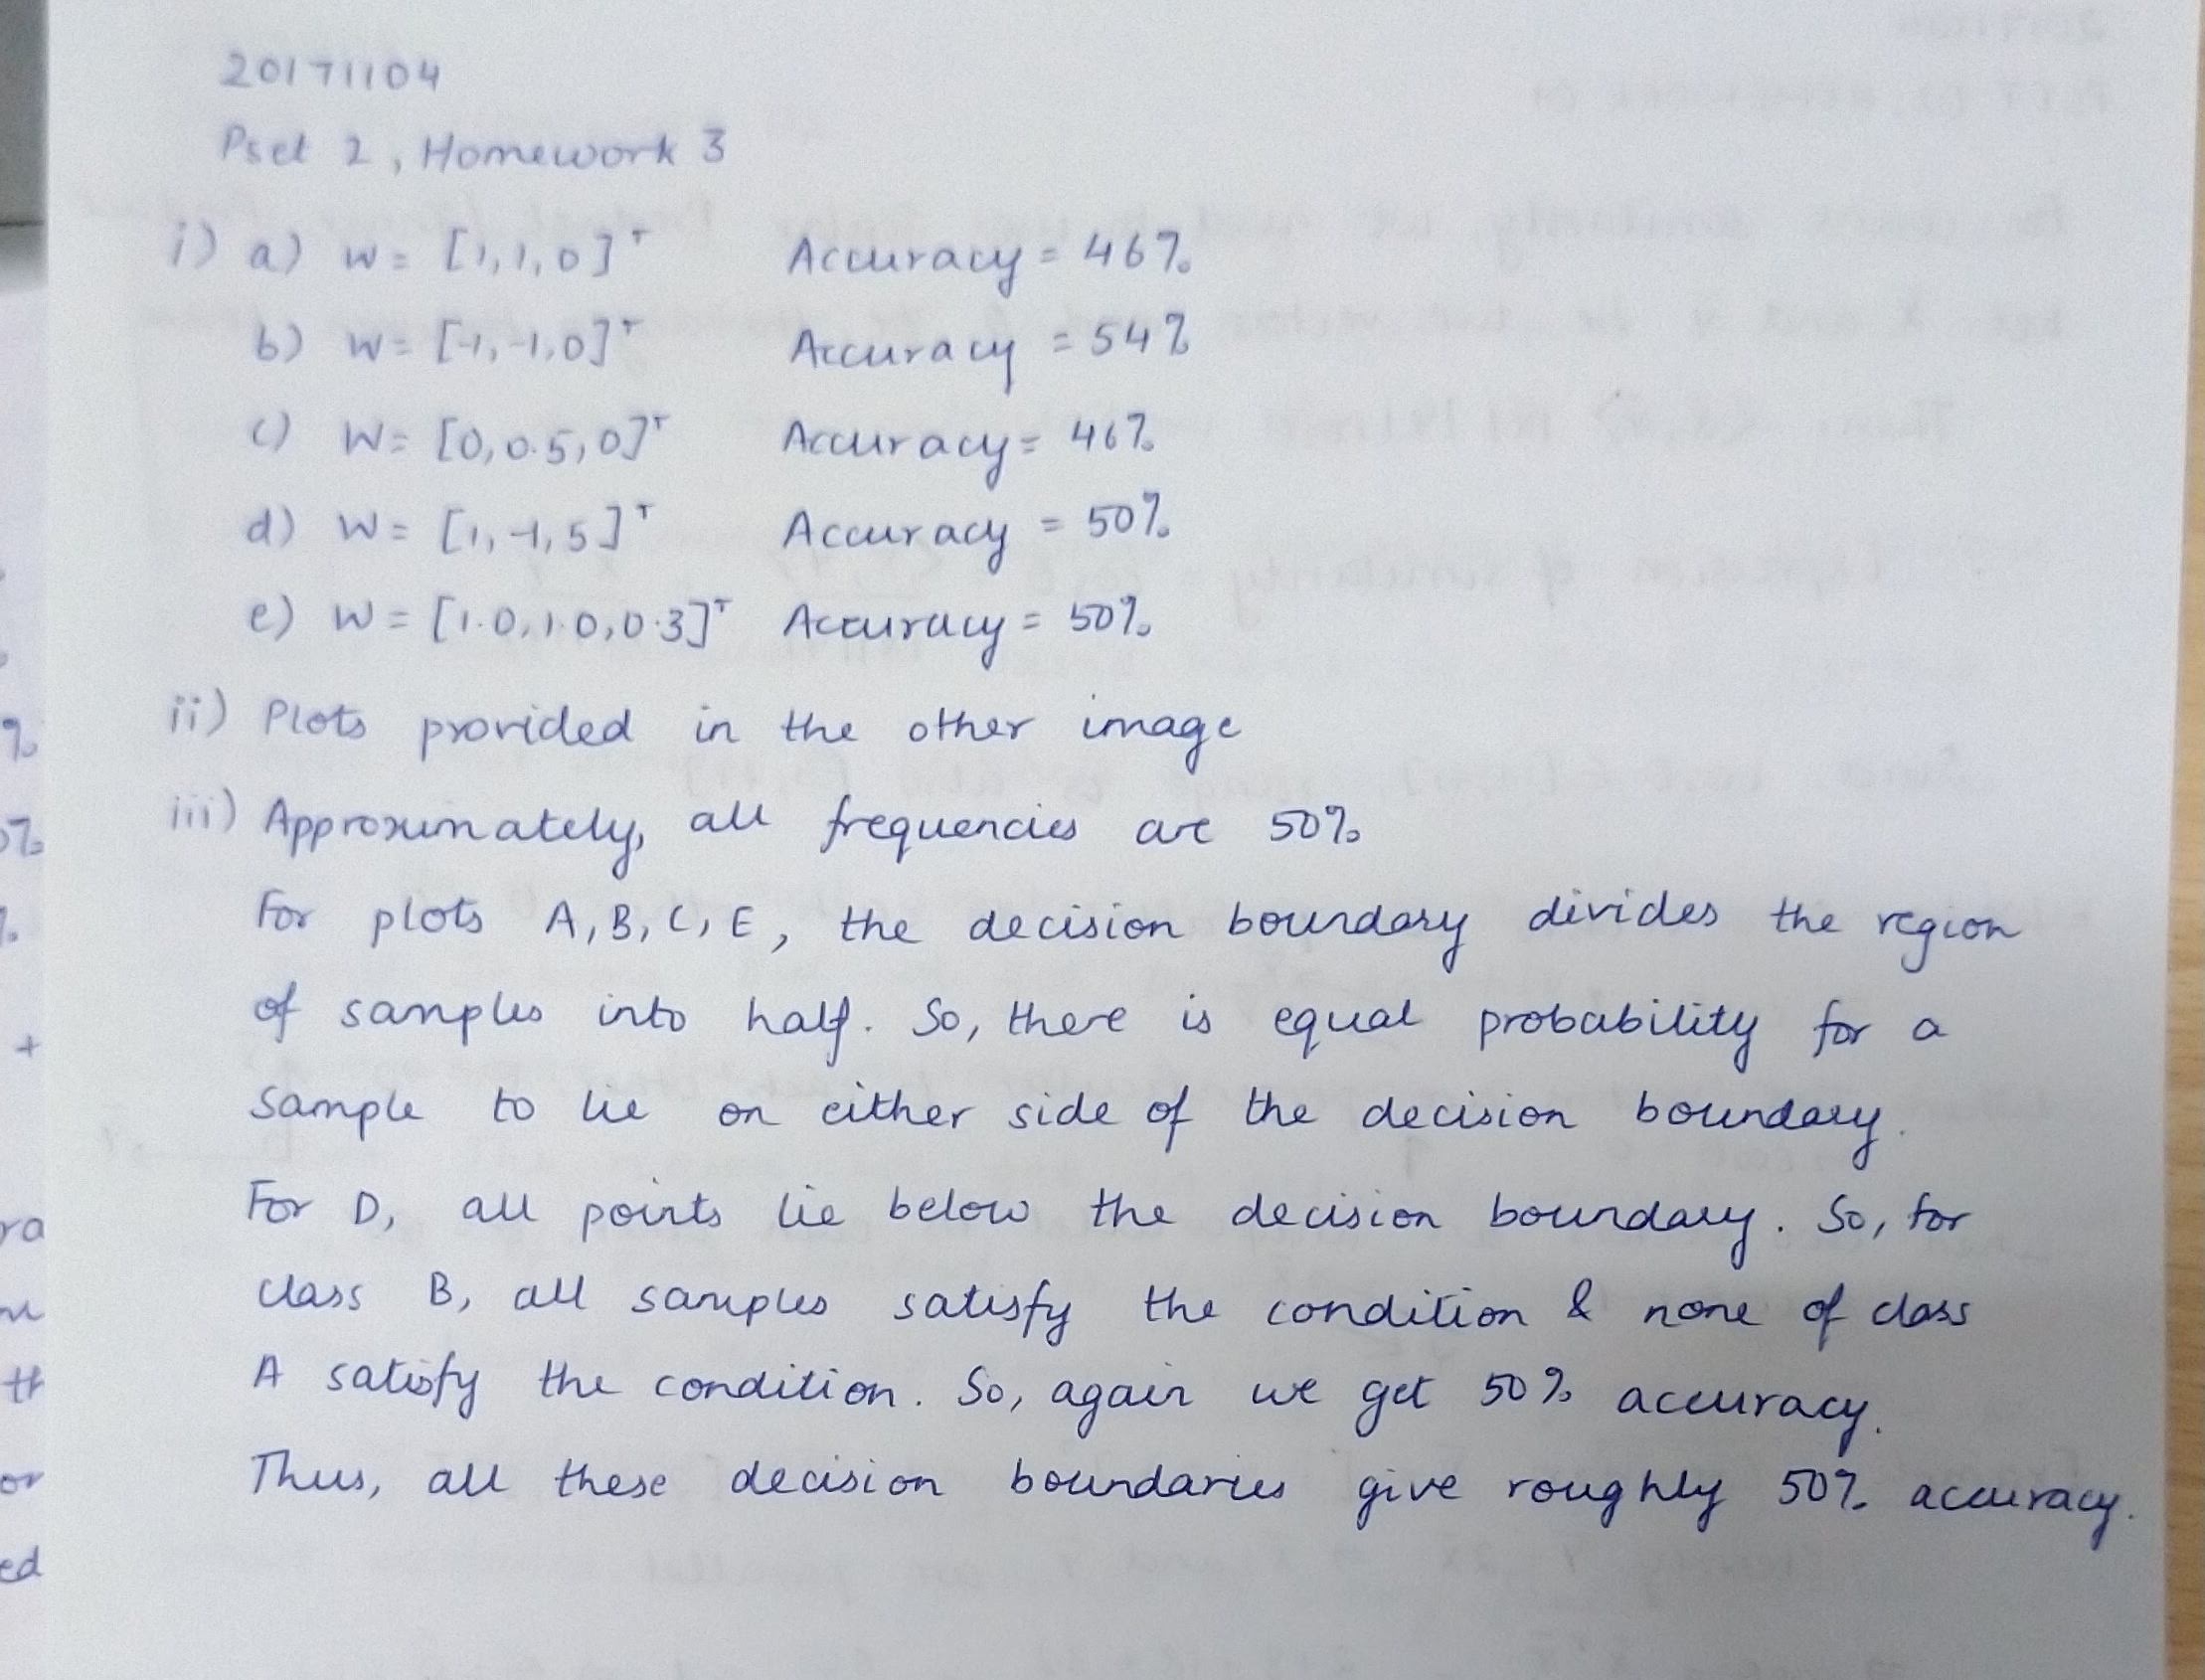 20171104
Pset 2, Homework 3
i) a) w = [1,1,0]ᵀ Accuracy = 46%
b) w = [-1,-1,0]ᵀ Accuracy = 54%
c) w = [0,0.5,0]ᵀ Accuracy = 46%
d) w = [1,-1,5]ᵀ Accuracy = 50%
e) w = [1.0,1.0,0.3]ᵀ Accuracy = 50%
ii) Plots provided in the other image
iii) Approximately, all frequencies are 50%
For plots A, B, C, E, the decision boundary divides the region
of samples into half. So, there is equal probability for a
sample to lie on either side of the decision boundary.
For D, all points lie below the decision boundary. So, for
class B, all samples satisfy the condition & none of class
A satisfy the condition. So, again we get 50% accuracy.
Thus, all these decision boundaries give roughly 50% accuracy.